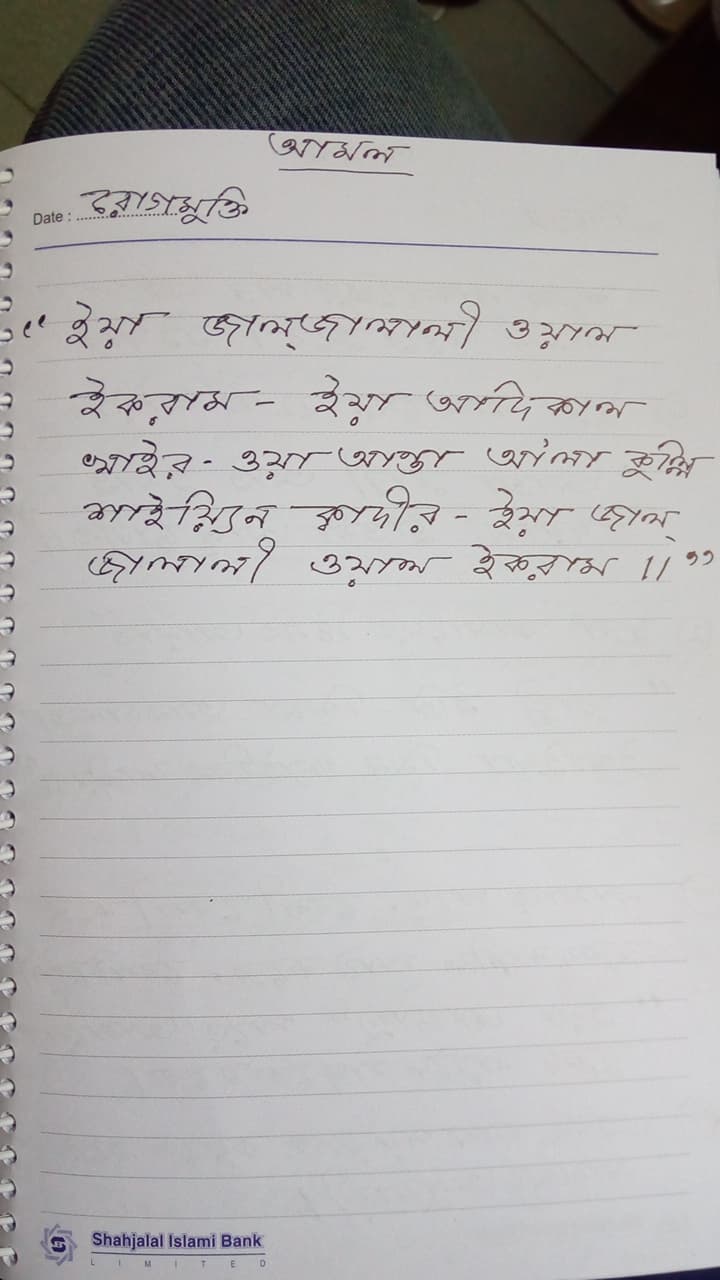 আমল
Date : রোগমুক্তি
“ ইয়া জাল্জালালী ওয়াল
ইকরাম - ইয়া আদিকাল
খাইর - ওয়া আন্তা আ'লা কুল্লি
শাইয়্যিন ক্বাদীর - ইয়া জাল্
জালালী ওয়াল ইকরাম ।। ”
Shahjalal Islami Bank
LIMITED